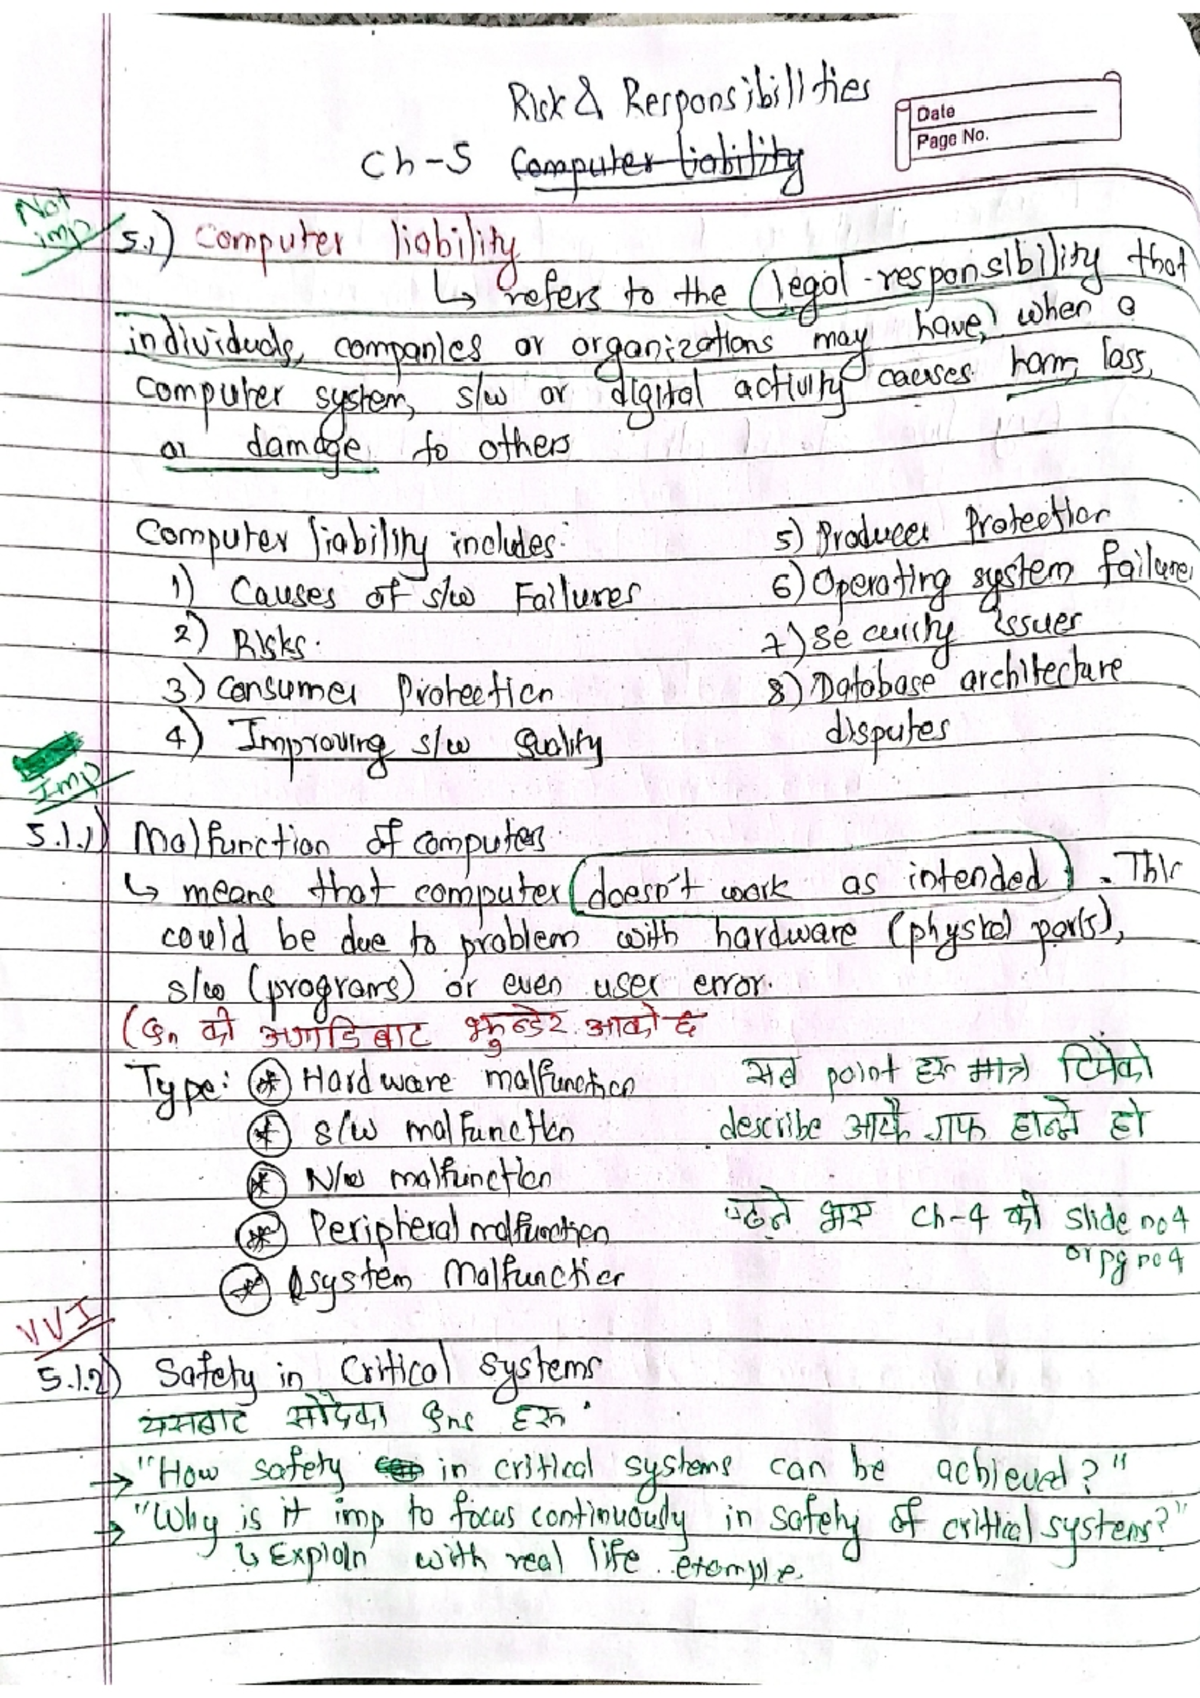 Risk & Responsibillties
Date
Page No.
Ch-5 Computer liability
Not imp
5.1) Computer liability
↳ refers to the legal responsibility that
individuals, companies or organizations may have, when a
computer system, s/w or digital activity causes harm, loss,
or damage to others
Computer liability includes:
1) Causes of s/w Failures
2) Risks.
3) Consumer Protection
4) Improving s/w Quality
5) Producer Protection
6) Operating system failure
7) Security issues
8) Database architecture
disputes
Imp
5.1.1) Malfunction of computers
↳ means that computer doesn't work as intended. This
could be due to problem with hardware (physical parts),
s/w (programs) or even user error.
(Qn को अगाडि बाट आको छ
Type: * Hardware malfunction
* s/w malfunction
* N/w malfunction
* Peripheral malfunction
* system Malfunction
सब point हरु मात्र टिपेको
describe आफै गफ हान्ने हो
पढ्ने भए ch-4 को slide no 4
or pg no 4
VVI
5.1.2) Safety in Critical systems
यसबाट सोदेका Qns हरु
→ "How safety in critical systems can be achieved?"
→ "Why is it imp to focus continuously in safety of critical systems?"
↳ Explain with real life example.